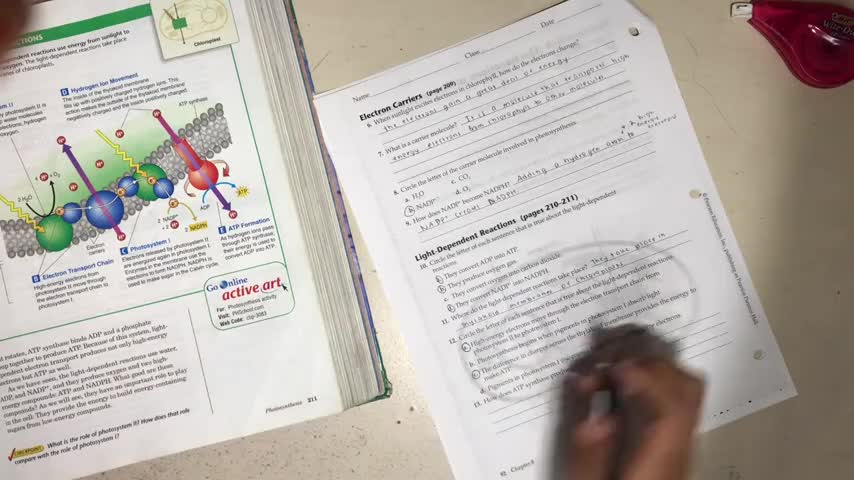 CTIONS
ependent reactions use energy from sunlight to
oxygen. The light-dependent reactions take place
ranes of chloroplasts.
Chloroplast
D Hydrogen Ion Movement
The inside of the thylakoid membrane
fills up with positively charged hydrogen ions. This
action makes the outside of the thylakoid membrane
negatively charged and the inside positively charged.
ATP synthase
2 H₂O
4 H⁺ + O₂
Electron
carriers
2 NADP⁺
2 NADPH
ADP
ATP
B Electron Transport Chain
High-energy electrons from
photosystem II move through
the electron transport chain to
photosystem I.
C Photosystem I
Electrons released by photosystem II
are energized again in photosystem I.
Enzymes in the membrane use the
electrons to form NADPH. NADPH is
used to make sugar in the Calvin cycle.
E ATP Formation
As hydrogen ions pass
through ATP synthase,
their energy is used to
convert ADP into ATP.
Go Online
active art
For: Photosynthesis activity
Visit: PHSchool.com
Web Code: cbp-3083
t rotates, ATP synthase binds ADP and a phosphate
up together to produce ATP. Because of this system, light-
ependent electron transport produces not only high-energy
ectrons but ATP as well.
As we have seen, the light-dependent reactions use water,
DP, and NADP⁺, and they produce oxygen and two high-
energy compounds: ATP and NADPH. What good are these
compounds? As we will see, they have an important role to play
in the cell: They provide the energy to build energy-containing
sugars from low-energy compounds.
CHECKPOINT What is the role of photosystem II? How does that role
compare with the role of photosystem I?
Photosynthesis 211
Name
Class
Date
Electron Carriers (page 209)
6. When sunlight excites electrons in chlorophyll, how do the electrons change?
the electrons gain a great deal of energy.
7. What is a carrier molecule? It is a molecule that transports high
energy electrons from chlorophyll to other molecules.
8. Circle the letter of the carrier molecule involved in photosynthesis.
a. H₂O c. CO₂
b. NADP⁺ d. O₂
9. How does NADP⁺ become NADPH? Adding a hydrogen atom to
NADP⁺ creates NADPH
Light-Dependent Reactions (pages 210–211)
10. Circle the letter of each sentence that is true about the light-dependent
reactions.
a. They convert ADP into ATP.
b. They produce oxygen gas.
c. They convert oxygen into carbon dioxide.
d. They convert NADP⁺ into NADPH.
11. Where do the light-dependent reactions take place? They take place in
thylakoid membrane of chloroplast
12. Circle the letter of each sentence that is true about the light-dependent
a. High-energy electrons move through the electron transport chain from
photosystem II to photosystem I.
b. Photosynthesis begins when pigments in photosystem I absorb light.
c. The difference in charges across the thylakoid membrane provides the energy to
make ATP.
d. Pigments in photosystem I use
13. How does ATP synthase produce
92 Chapter 8